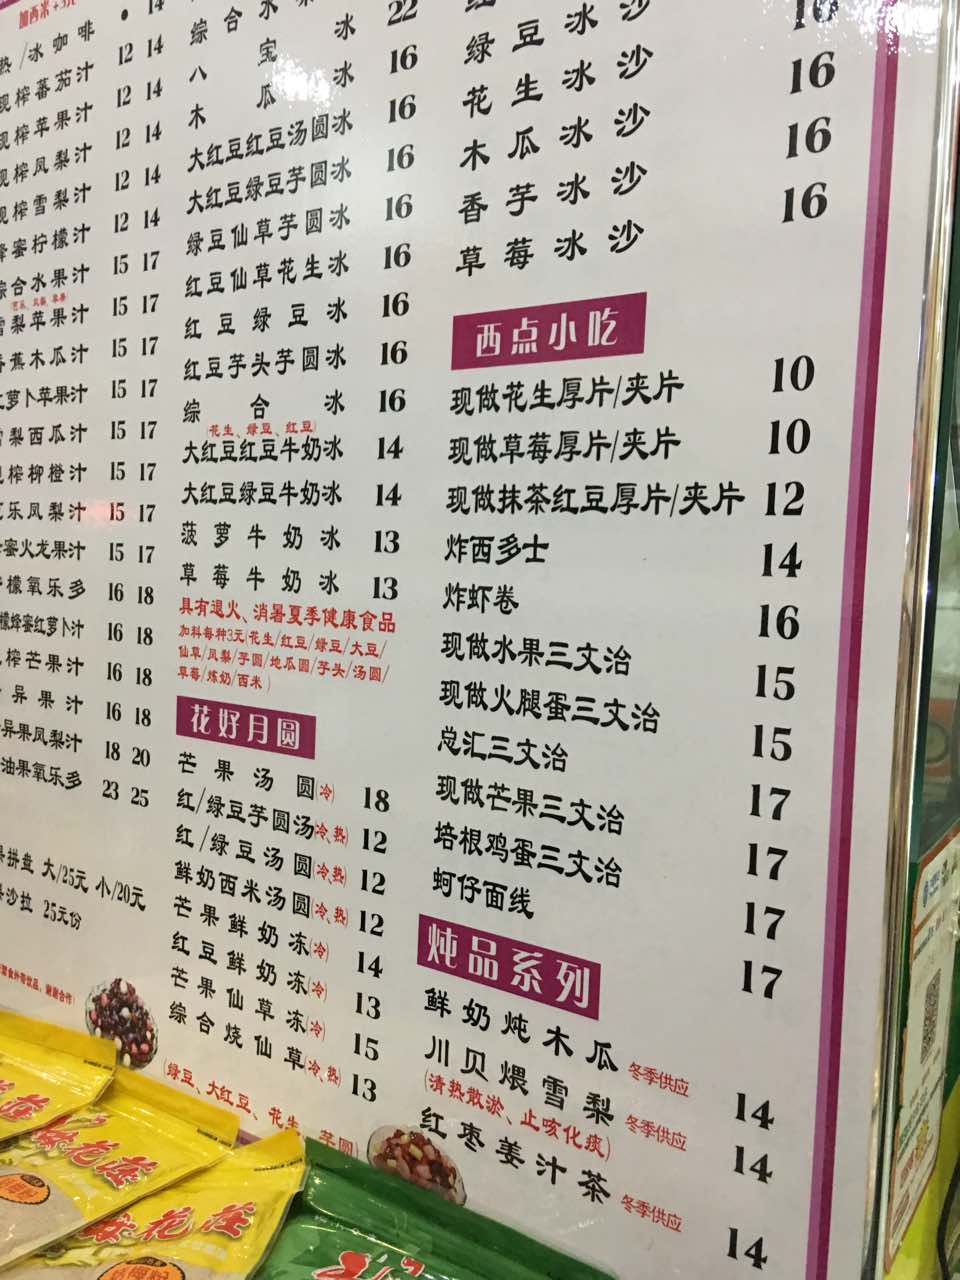 加西米+3元
热/冰咖啡 ● 14
现榨蕃茄汁 12 14
现榨苹果汁 12 14
现榨凤梨汁 12 14
现榨雪梨汁 12 14
蜂蜜柠檬汁 12 14
综合水果汁 15 17
雪梨苹果汁 15 17
香蕉木瓜汁 15 17
萝卜苹果汁 15 17
雪梨西瓜汁 15 17
榨柳橙汁 15 17
乐凤梨汁 15 17
蜜火龙果汁 15 17
檬氧乐多 16 18
檬蜂蜜红萝卜汁 16 18
榨芒果汁 16 18
异果汁 16 18
异果凤梨汁 18 20
油果氧乐多 23 25
果拼盘 大/25元 小/20元
沙拉 25元份
综合水
八宝冰 22
木瓜冰 16
大红豆红豆汤圆冰 16
大红豆绿豆芋圆冰 16
绿豆仙草芋圆冰 16
红豆仙草花生冰 16
红豆绿豆冰 16
红豆芋头芋圆冰 16
综合冰 16
(花生、绿豆、红豆)
大红豆红豆牛奶冰 14
大红豆绿豆牛奶冰 14
菠萝牛奶冰 13
草莓牛奶冰 13
具有退火、消暑夏季健康食品
加料每种3元(花生/红豆/绿豆/大豆/
仙草/凤梨/芋圆/地瓜圆/芋头/汤圆/
草莓/炼奶/西米)
花好月圆
芒果汤圆(冷) 18
红/绿豆芋圆汤(冷、热) 12
红/绿豆汤圆(冷、热) 12
鲜奶西米汤圆(冷、热) 12
芒果鲜奶冻(冷) 14
红豆鲜奶冻(冷) 13
芒果仙草冻(冷) 15
综合烧仙草(冷、热) 13
(绿豆、大红豆、花生、芋圆)
红豆冰沙
绿豆冰沙
花生冰沙 16
木瓜冰沙 16
香芋冰沙 16
草莓冰沙 16
西点小吃
现做花生厚片/夹片 10
现做草莓厚片/夹片 10
现做抹茶红豆厚片/夹片 12
炸西多士 14
炸虾卷 16
现做水果三文治 15
现做火腿蛋三文治 15
总汇三文治 17
现做芒果三文治 17
培根鸡蛋三文治 17
蚵仔面线 17
炖品系列
鲜奶炖木瓜 冬季供应 14
川贝煨雪梨 冬季供应 14
(清热散淤、止咳化痰)
红枣姜汁茶 冬季供应 14